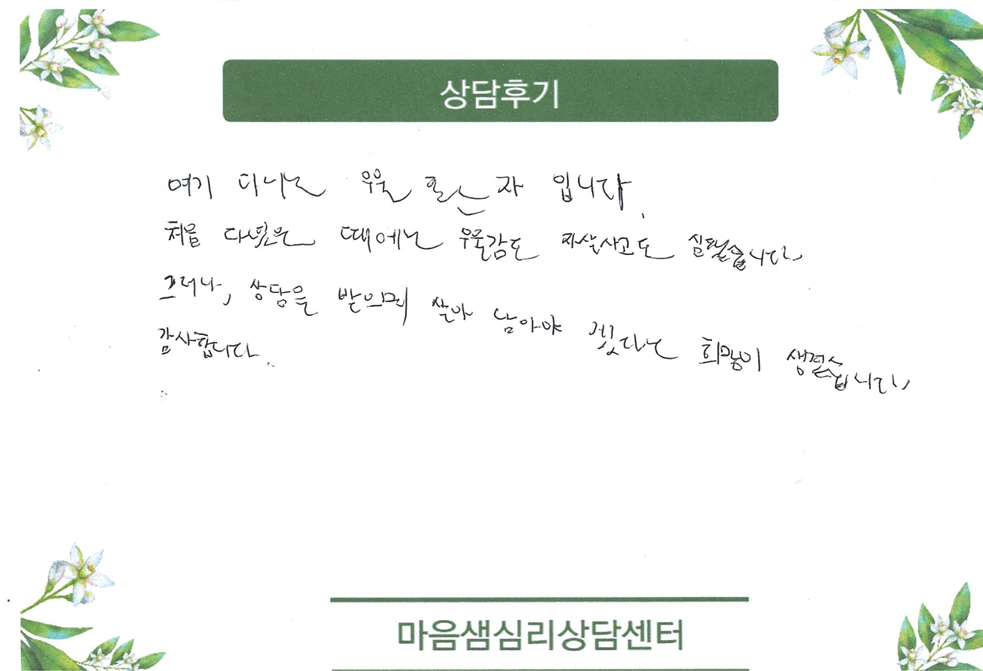 상담후기
여기 다니는 우울 환자 입니다.
처음 다녔을 때에는 우울감도 자살사고도 심했습니다.
그러나, 상담을 받으며 살아 남아야 겠다는 희망이 생겼습니다.
감사합니다..
마음샘심리상담센터